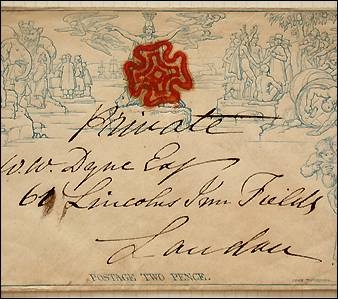 Private
W.W. Dyne Esq
60 Lincolns Inn Fields
London
POSTAGE TWO PENCE.